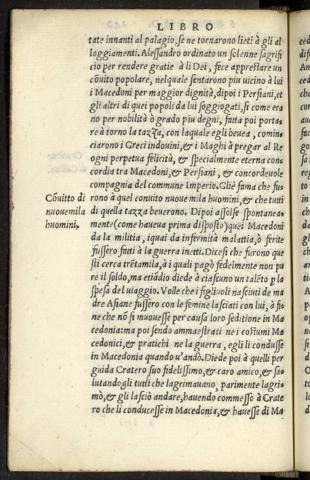 LIBRO
tate innanti al palagio, se ne tornarono lieti à gli al
loggiamenti. Alessandro ordinato un solenne sagrifi
cio per rendere gratie à li Dei, fece apprestare un
cōuito popolare, nelquale sentarono piu uicino à lui
i Macedoni per maggior dignità, dipoi i Persiani, et
gli altri di quei popoli da lui soggiogati, si come era
no per nobilità ò grado piu degni, fatta poi porta-
re à torno la tazza, con laquale egli beuea, comin-
ciarono i Greci indouini, & i Maghi à pregar al Re
ogni perpetua felicità, & spetialmente eterna con
cordia tra Macedoni, & Persiani, & concordeuole
compagnia del commune Imperio. Gliè fama che fus
Cōuito di
nouemila
huomini.
rono à quel conuito noue mila huomini, & che tutti
di quella tazza beuerono. Dipoi assolse spontanea
mente (come haueua prima disposto) quei Macedoni
da la militia, iquai da infermità malattia, ò ferite
fussero fatti à la guerra inetti. Dicesi che furono que
sti cerca trētamila, à i quali pagò fedelmente non pu
re il soldo, ma etiādio diede à ciascuno un talēto p la
spesa del uiaggio. Volle che i figliuoli nasciuti de ma
dre Asiane fussero con le femine lasciati con lui, à fi
ne che nō si mouesse per causa loro seditione in Ma
cedonia: ma poi sendo ammaestrati ne i costumi Ma
cedonici, & pratichi ne la guerra, egli li condusse
in Macedonia quando u'andò. Diede poi à quelli per
guida Cratero suo fidelissimo, & caro amico, & sa
lutando gli tutti che lagrimauano, parimente lagri
mò, & gli lasciò andare, hauendo commesso à Crate
ro che li conducesse in Macedonia, & hauesse di Ma